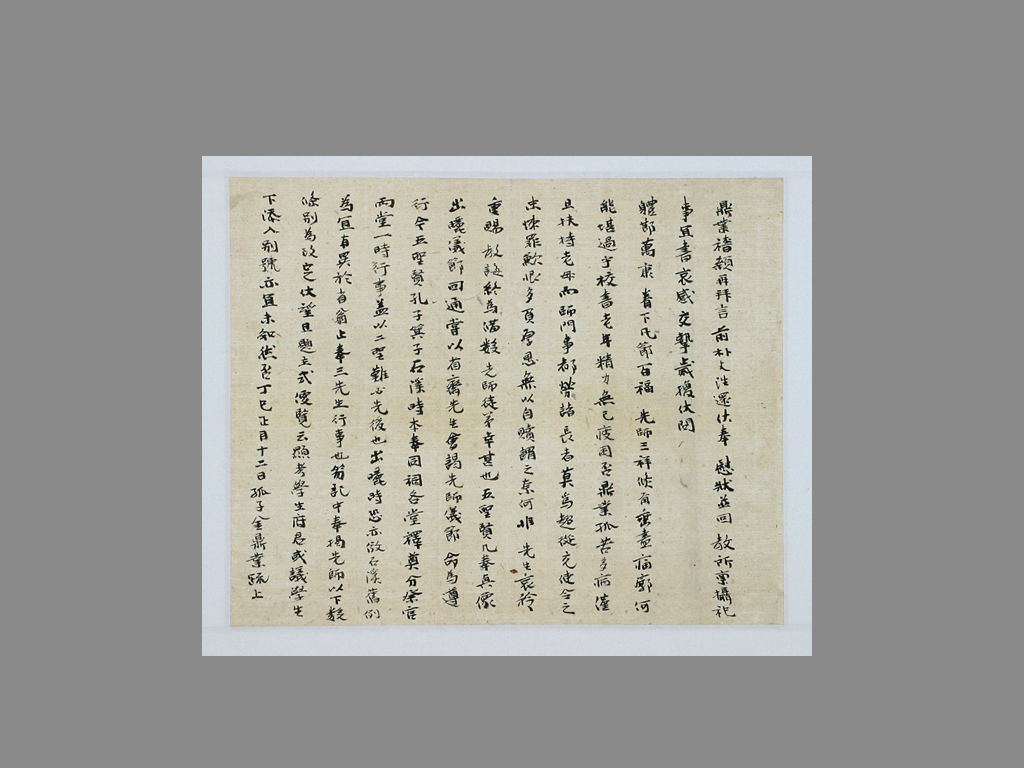 鼎業稽顙再拜言 前朴大浩還伏奉 慰狀並回 教所稟攝祀
事宜書哀感交摯歲擾伏問
體節萬衷 眷下凡節百福 先師三祥倏有 痛廓何
能堪過宇校書老年精力無已疲困否鼎業孤苦多病僅
且扶持老母而師門事都勞諸長者莫爲趨從充使令之
末悚罪歉恨多負厚恩無以自贖謂之奈何惟 先生哀矜
重賜 教誨終爲滿數 先師徒弟幸甚也五聖賢凡奉眞像
出曬儀節回通當以省齋先生會謁先師儀節 命爲遵
行今五聖賢孔子箕子石溪時本奉同祠各堂釋奠分祭官
兩堂一時行事蓋以二聖難必先後也出曬時恐亦倣石溪舊例
爲宜有異於省翁止奉三先生行事也笏記中奉揭先師以下數
條別爲改定伏望且題主式謾覽云顯考學生府君或議學生
下添入別號亦宜未知然否丁巳正月十二日孤子金鼎業疏上